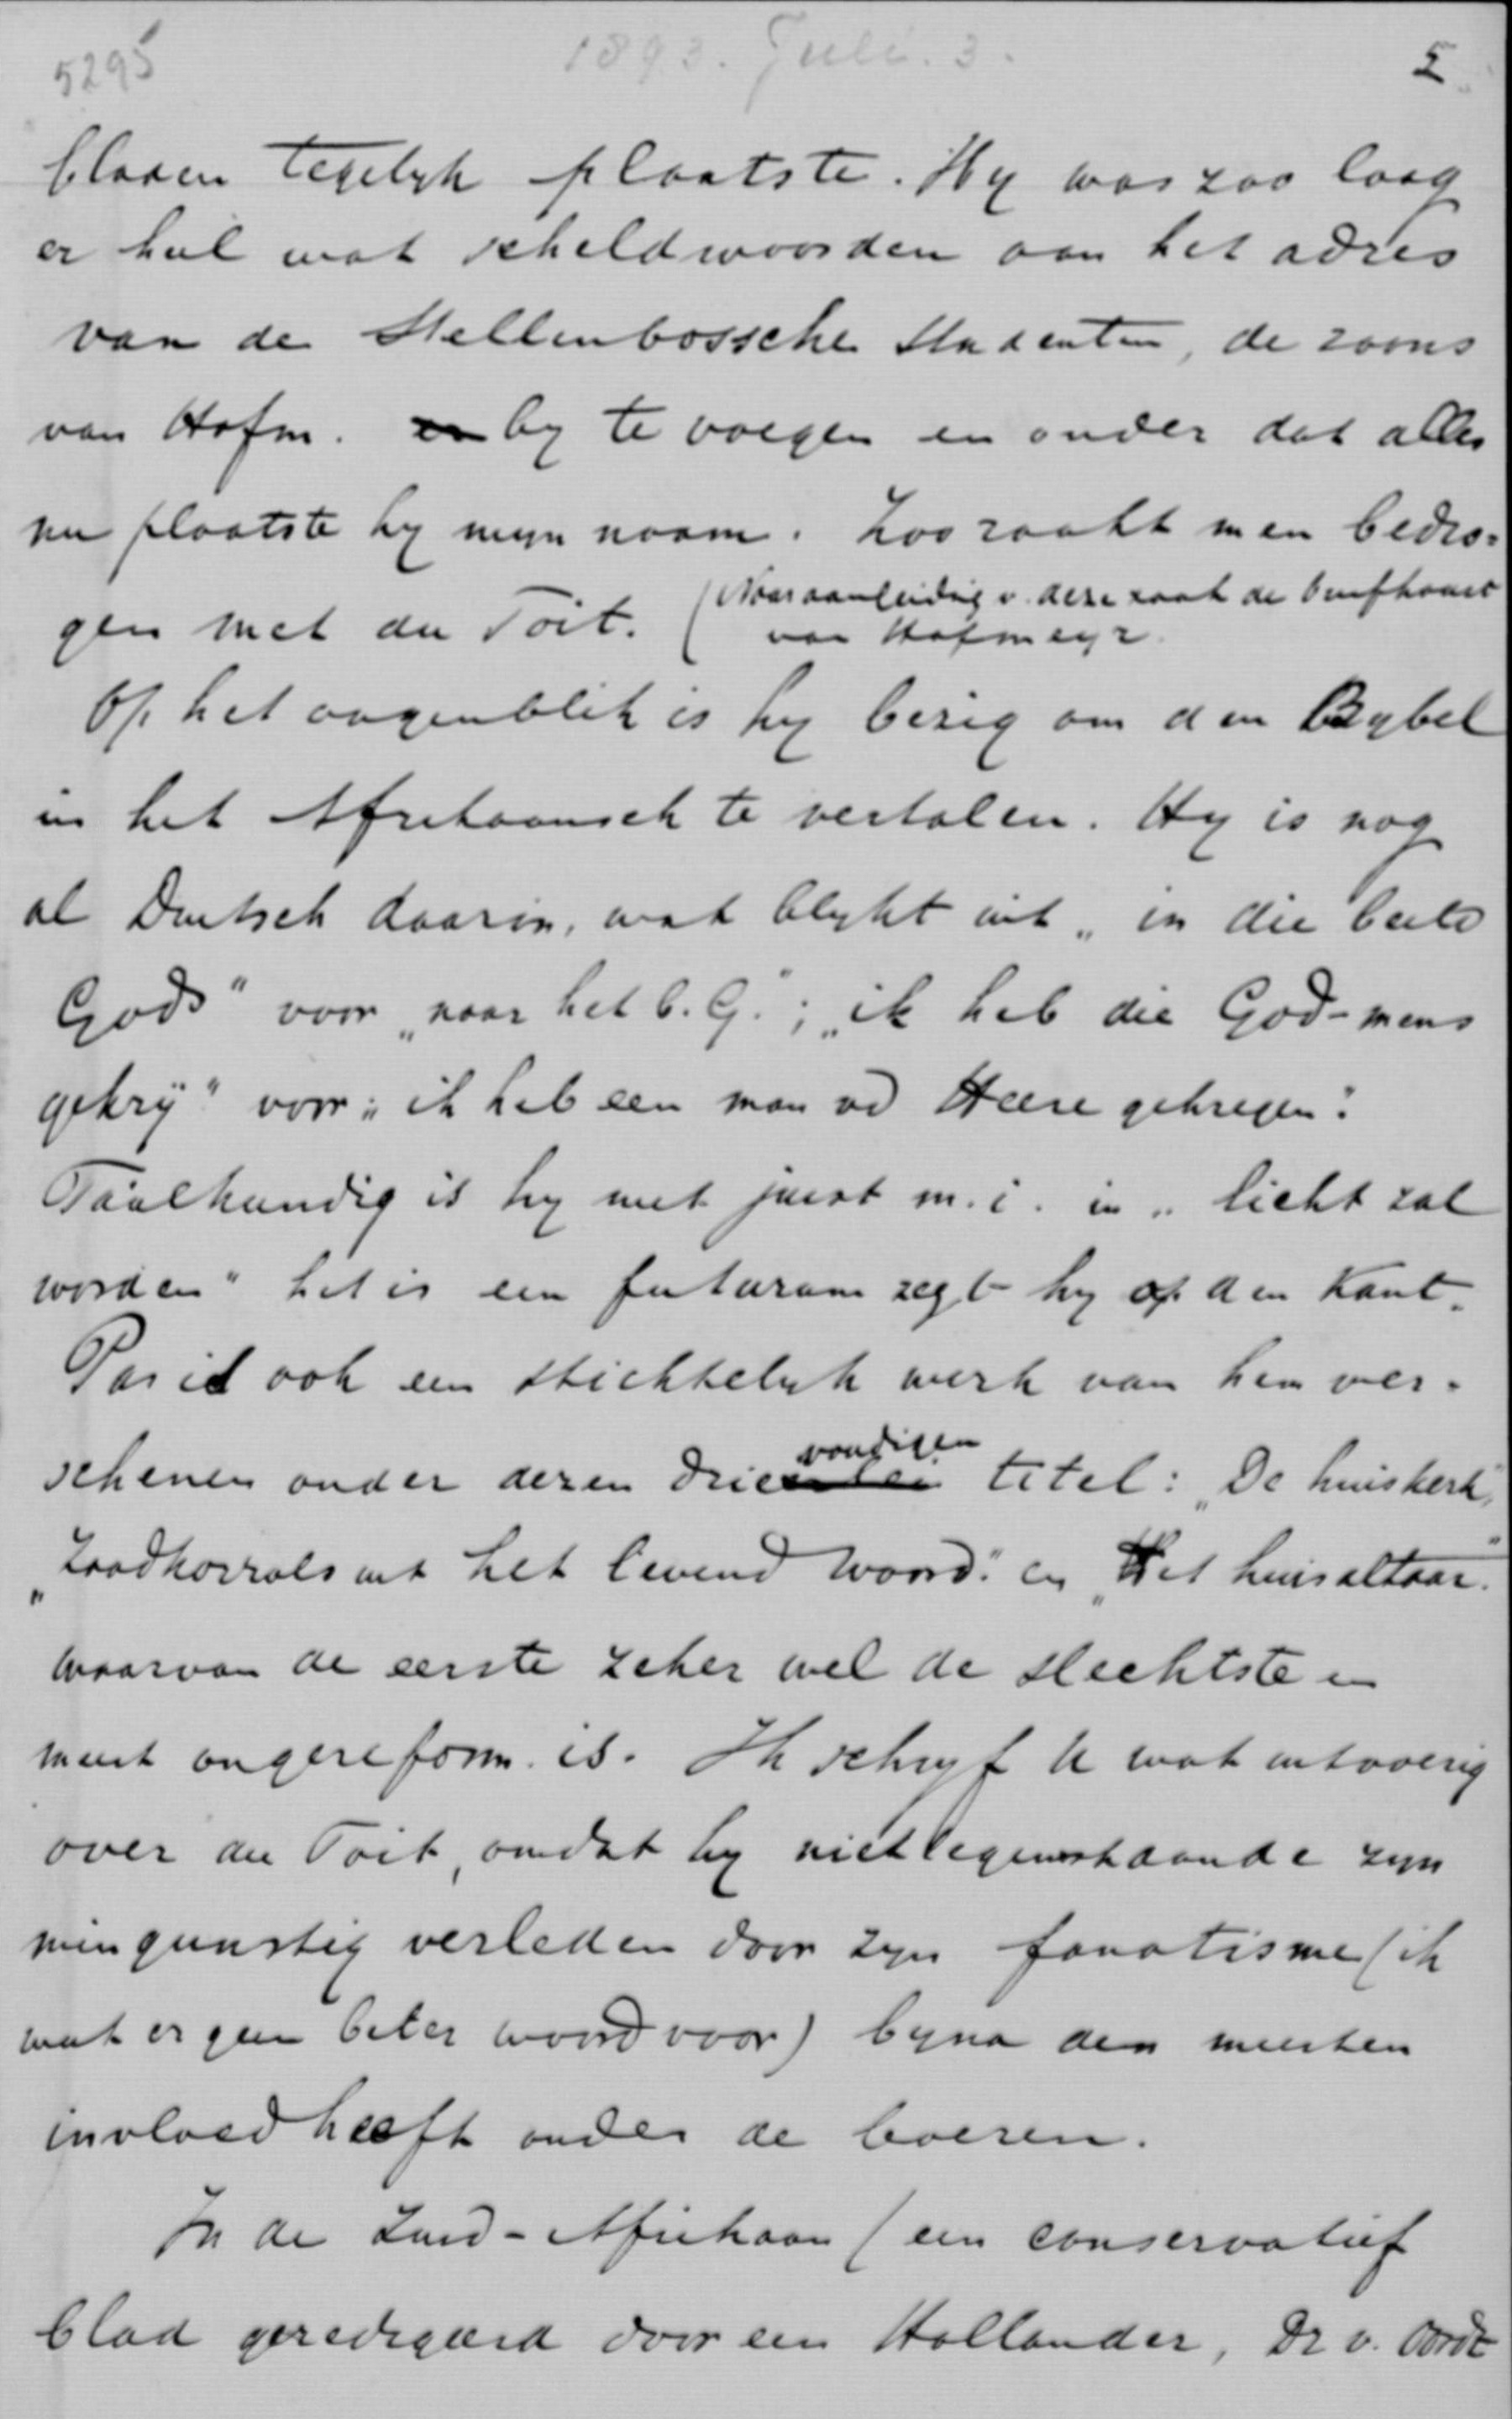 5295
1893. Juli. 3.
5
bladen tegelyk plaatste. Hy was zoo laag
er heel wat scheldwoorden aan het adres
van de Stellenbossche studenten, de zoons
van Hofm. by te voegen en onder dat alles
nu plaatste hy myn naam. Zoo raakt men bedro-
gen met du Toit. (Naar aanleiding v. deze zaak de briefkaart
van Hofmeyr.
Op het oogenblik is hy bezig om den Bybel
in het Afrikaansch te vertalen. Hy is nog
al Duitsch daarin, wat blykt uit „in die beeld
Gods" voor „naar het b. G."; „ik heb die God-mens
gekry" voor „ik heb een man vd Heere gekregen".
Taalkundig is hy niet juist m.i. in „licht zal
worden" het is een futurum zegt hy op den kant.
Pas is ook een stichtelyk werk van hem ver-
schenen onder dezen drievoudigen titel: „De huiskerk",
„Zaadkorrels uit het levend woord." en „Het huisaltaar."
waarvan de eerste zeker wel de slechtste en
meest ongereform. is. Ik schryf U wat uitvoerig
over du Toit, omdat hy niettegenstaande zyn
mingunstig verleden door zyn fanatisme (ik
weet er geen beter woord voor) byna den meesten
invloed heeft onder de boeren.
In de Zuid-Afrikaan (een conservatief
blad geredigeerd door een Hollander, Dr v. Oordt